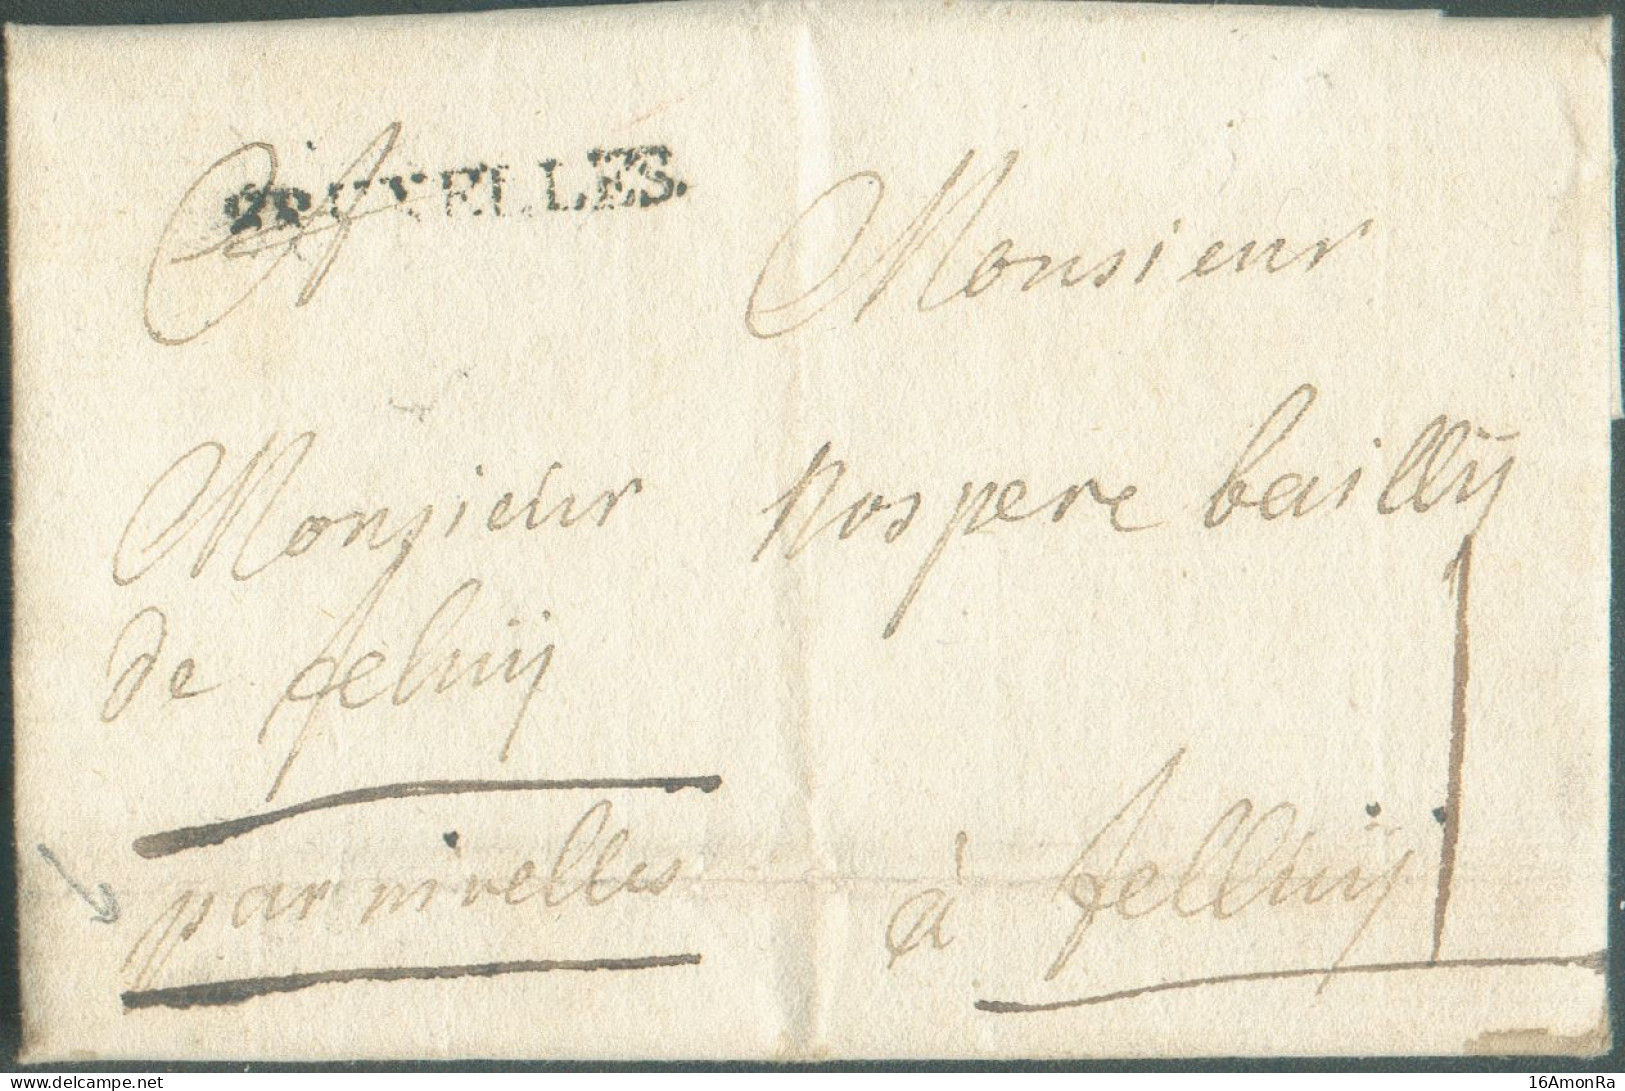 BRUXELLES.
A
Monsieur
Monsieur
nospere bailly
de feluij
par nivelles
à felluij
www.delcampe.net
16AmonRa